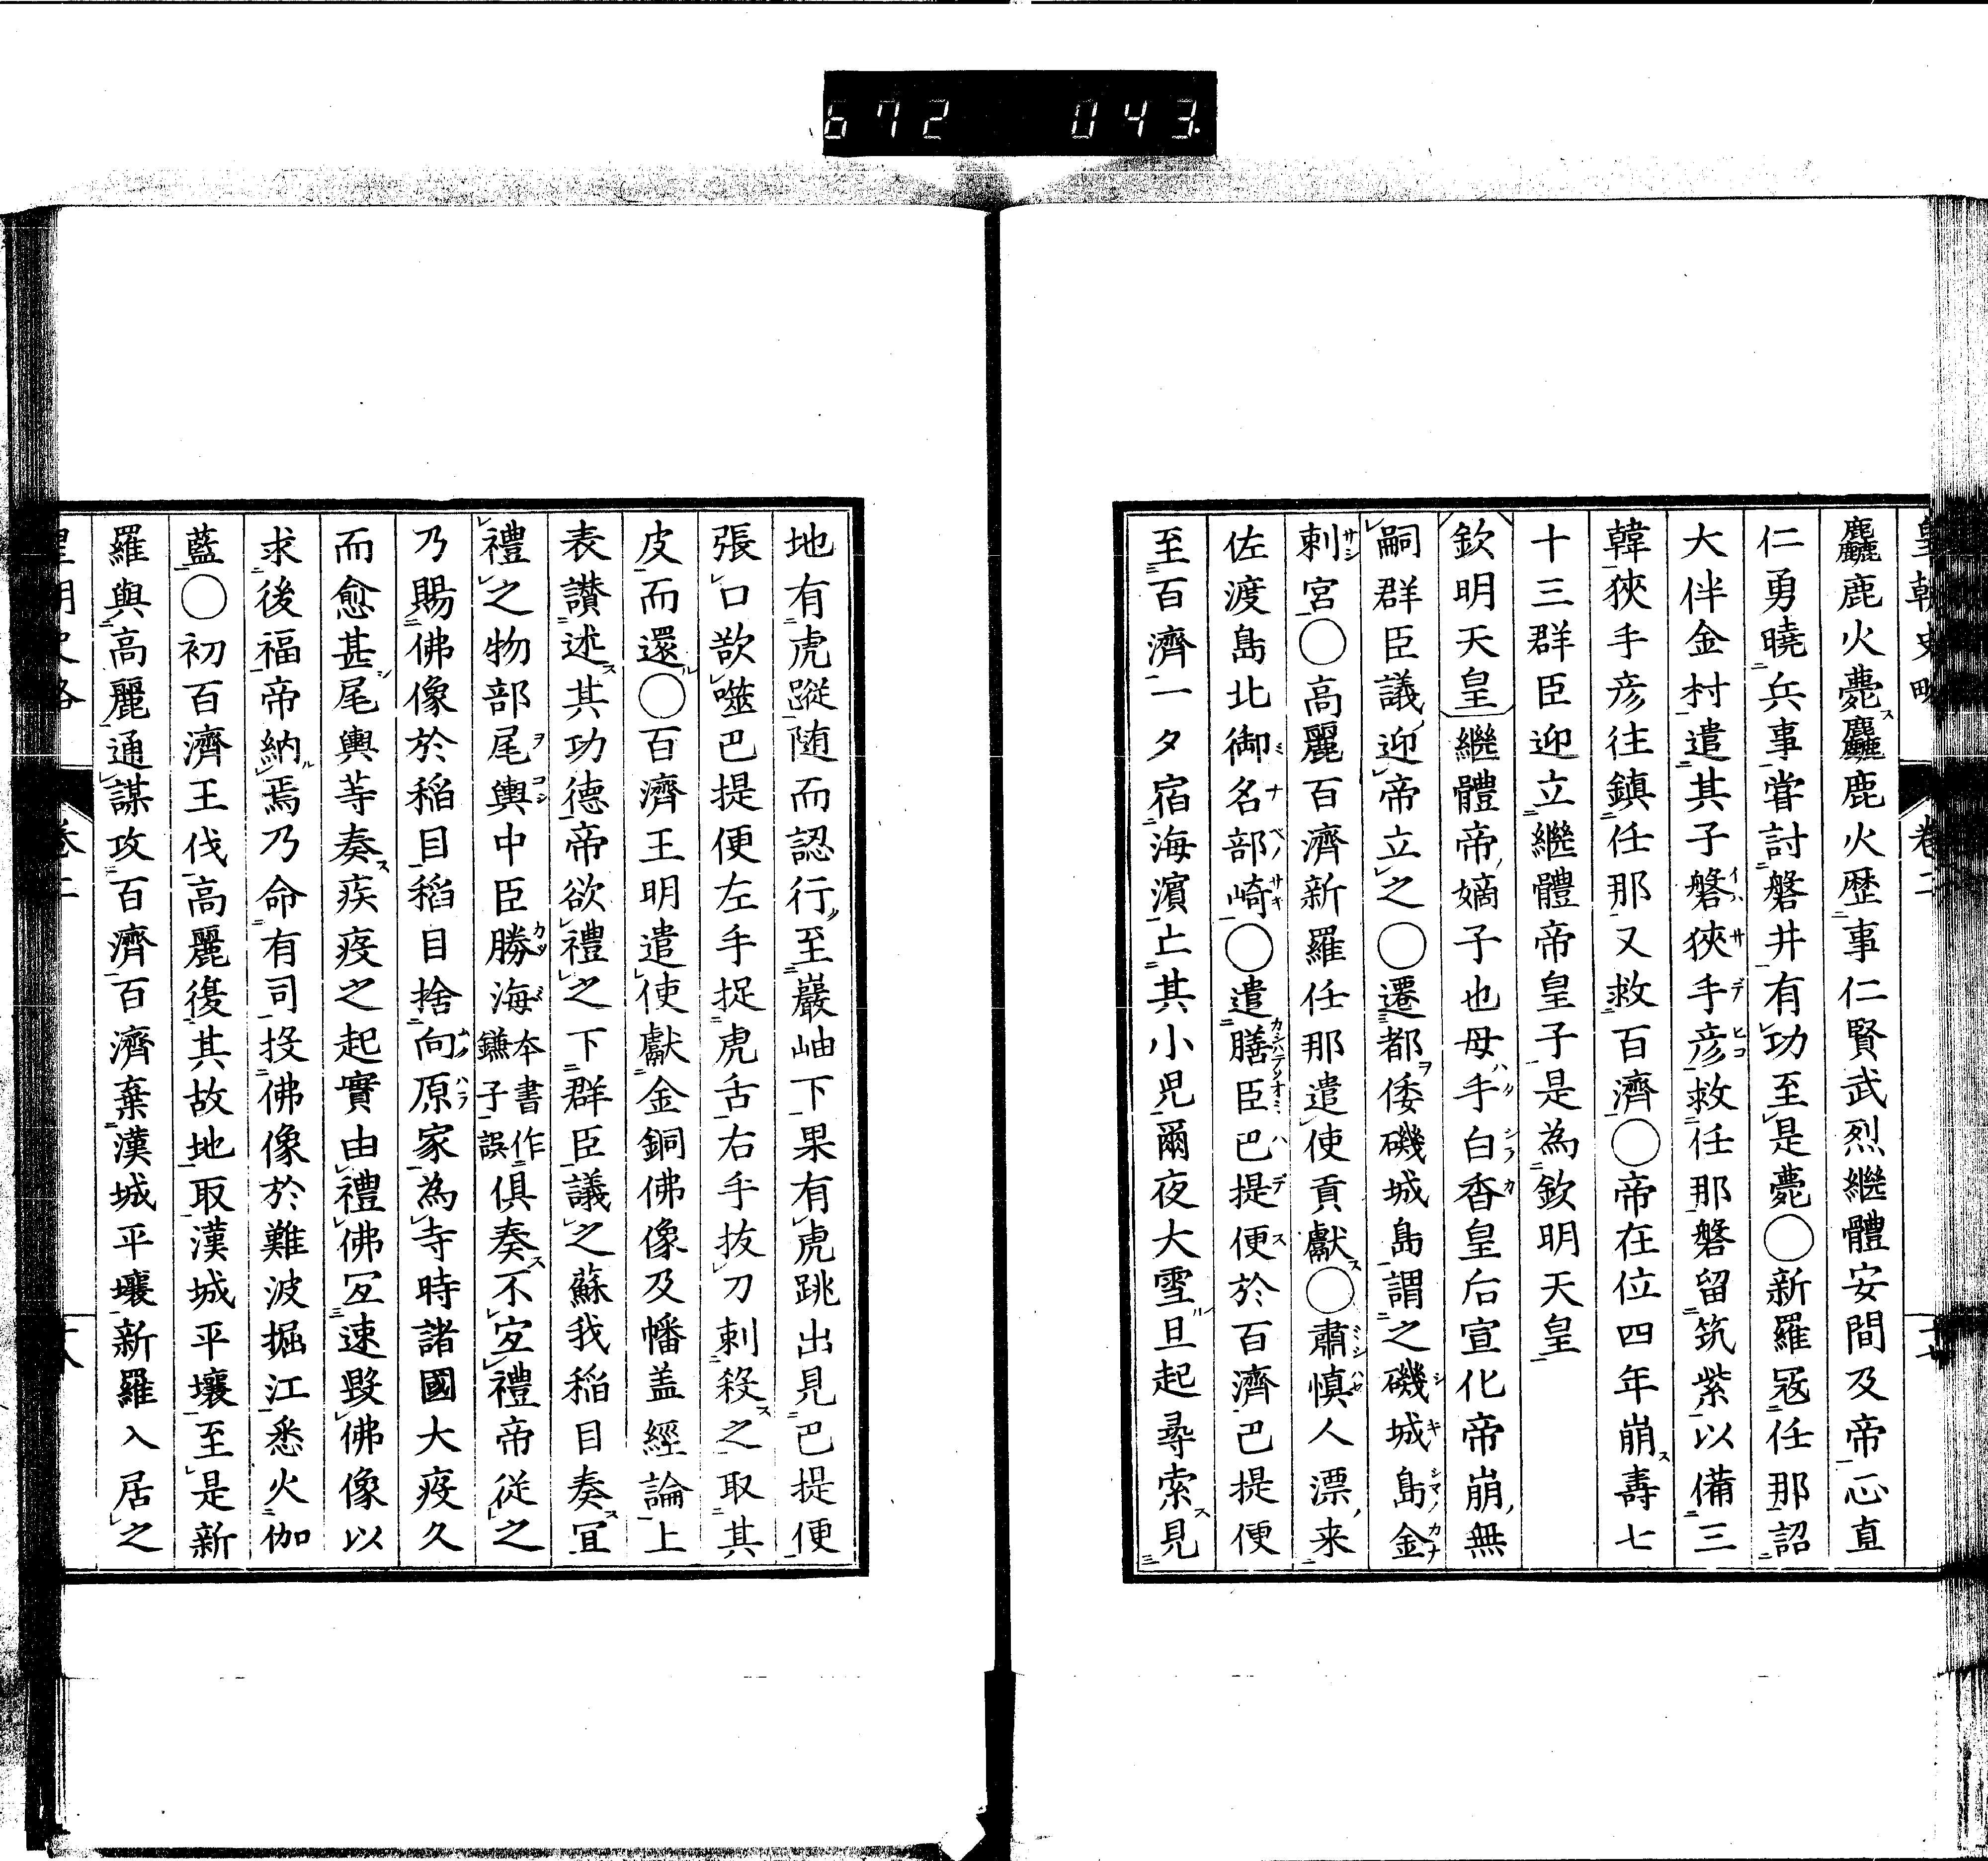 672 043
皇朝史略 卷二 十七
麤鹿火薨麤鹿火歷事仁賢武烈繼體安間及帝心直
仁勇曉兵事嘗討磐井有功至是薨○新羅寇任那詔
大伴金村遣其子磐狹手彥救任那磐留筑紫以備三
韓狹手彥往鎮任那又救百濟○帝在位四年崩壽七
十三群臣迎立繼體帝皇子是為欽明天皇
欽明天皇繼體帝嫡子也母手白香皇后宣化帝崩無
嗣群臣議迎帝立之○遷都倭磯城島謂之磯城島金
刺宮○高麗百濟新羅任那遣使貢獻○肅慎人漂来
佐渡島北御名部崎○遣膳臣巴提便於百濟巴提便
至百濟一夕宿海濱亡其小兒爾夜大雪旦起尋索見
地有虎蹤随而認行至巖岫下果有虎跳出見巴提便
張口欲噬巴提便左手捉虎舌右手抜刀刺殺之取其
皮而還○百濟王明遣使獻金銅佛像及幡盖經論上
表讚述其功德帝欲禮之下群臣議之蘇我稲目奏宜
禮之物部尾輿中臣勝海本書作鎌子誤俱奏不宜禮帝從之
乃賜佛像於稲目稲目捨向原家為寺時諸國大疫久
而愈甚尾輿等奏疾疫之起實由禮佛宜速毀佛像以
求後福帝納焉乃命有司投佛像於難波掘江悉火伽
藍○初百濟王伐高麗復其故地取漢城平壤至是新
羅與高麗通謀攻百濟百濟棄漢城平壤新羅入居之